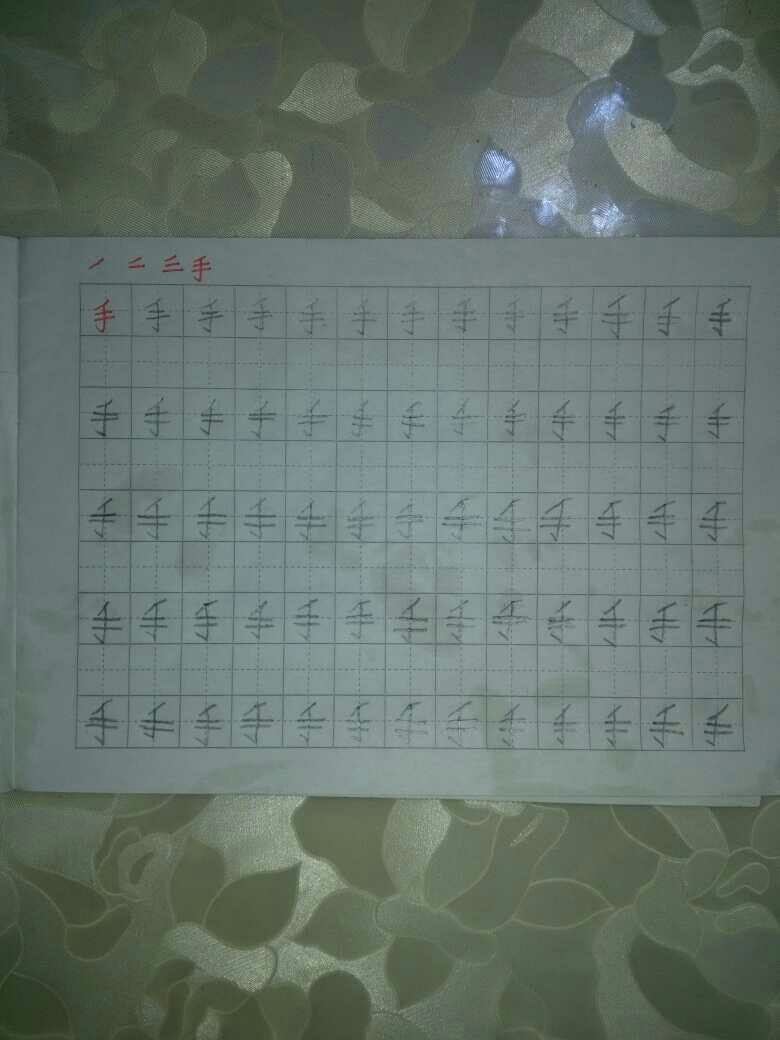 丿 二 三 手
手 手 手 手 手 手 手 手 手 手 手 手 手
手 手 手 手 手 手 手 手 手 手 手 手 手
手 手 手 手 手 手 手 手 手 手 手 手 手
手 手 手 手 手 手 手 手 手 手 手 手 手
手 手 手 手 手 手 手 手 手 手 手 手 手